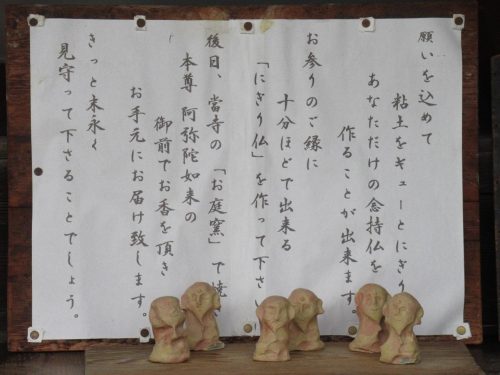 願いを込めて
粘土をキューとにぎり
あなただけの念持仏を
作ることが出来ます
お参りのご縁に
十分ほどで出来る
「にぎり仏」を作って下さい
後日、當寺の「お庭窯」で焼き
本尊 阿弥陀如来の
御前でお香を頂き
お手元にお届け致します。
きっと末永く
見守って下さることでしょう。